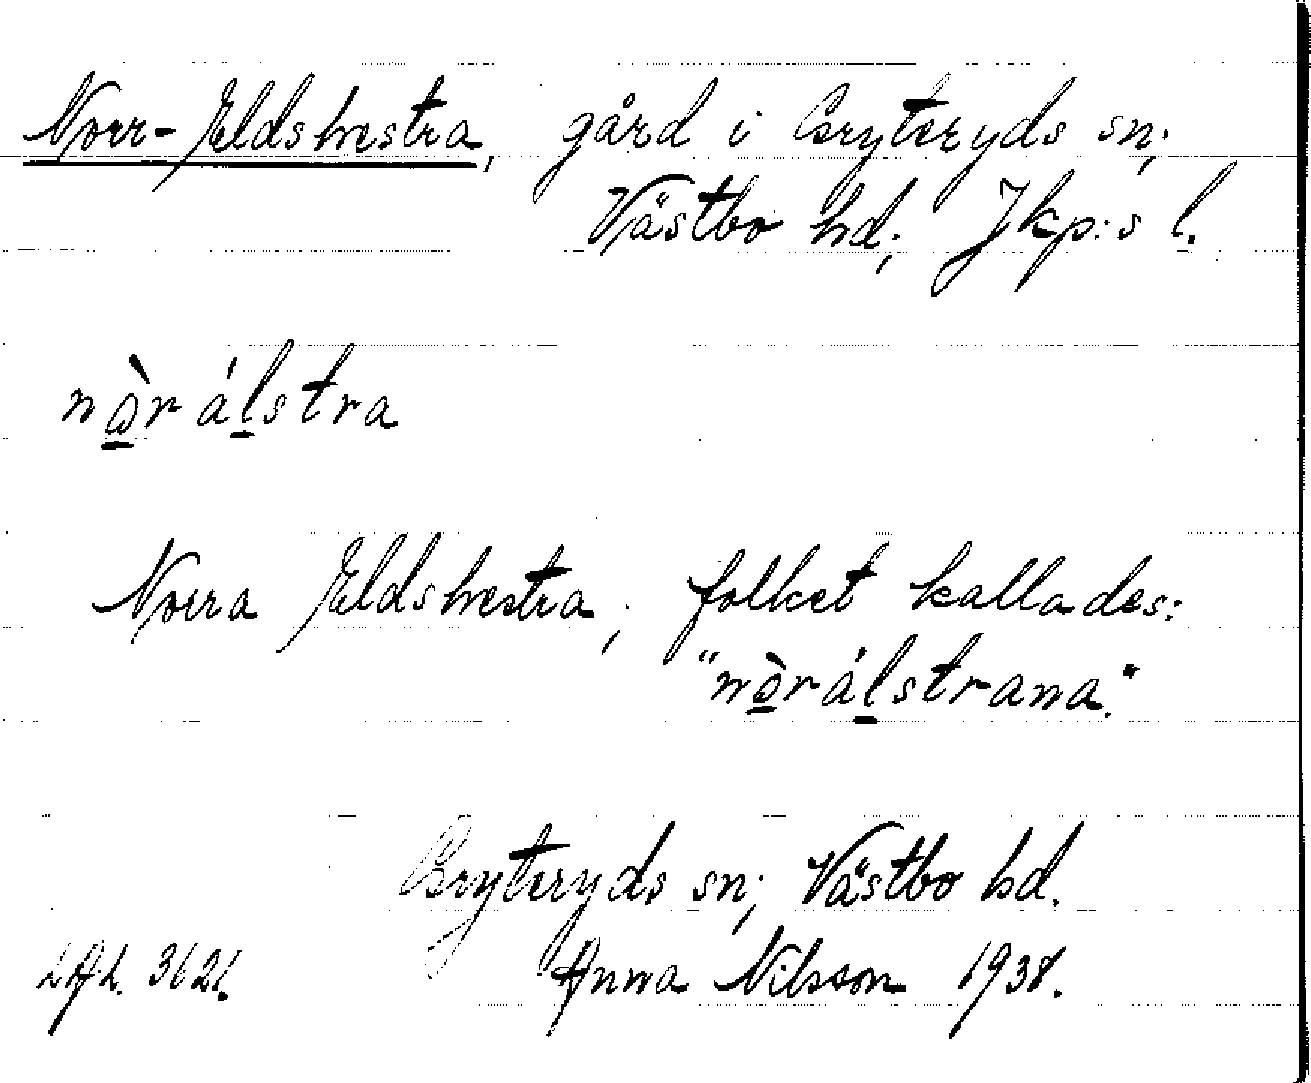 Norr-Eldshestra, gård i Bryteryds sn;
Västbo hd; Jkp:s l.
nòrálstra
Norra Eldshestra; folket kallades:
"nòrálstrana."
Bryteryds sn; Västbo hd.
LAL. 3621. Anna Nilsson 1938.